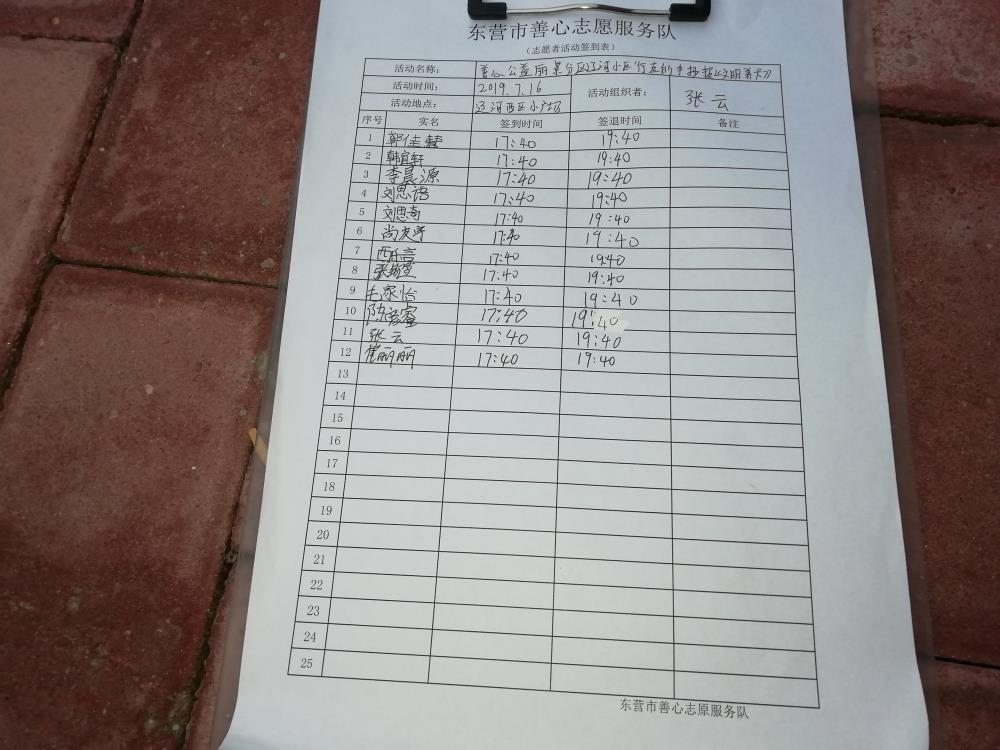 东营市善心志愿服务队
（志愿者活动签到表）
活动名称： 善心公益丽景分区辽河小区
活动时间： 2019.7.16 活动组织者： 张云
活动地点： 辽河西区小广场
序号 实名 签到时间 签退时间 备注
1 郭佳慧 17:40 19:40
2 韩宜轩 17:40 19:40
3 李晨源 17:40 19:40
4 刘思语 17:40 19:40
5 刘思奇 17:40 19:40
6 17:40 19:40
7 17:40 19:40
8 17:40 19:40
9 毛家怡 17:40 19:40
10 17:40 19:40
11 张云 17:40 19:40
12 崔丽丽 17:40 19:40
13
14
15
16
17
18
19
20
21
22
23
24
25
东营市善心志原服务队